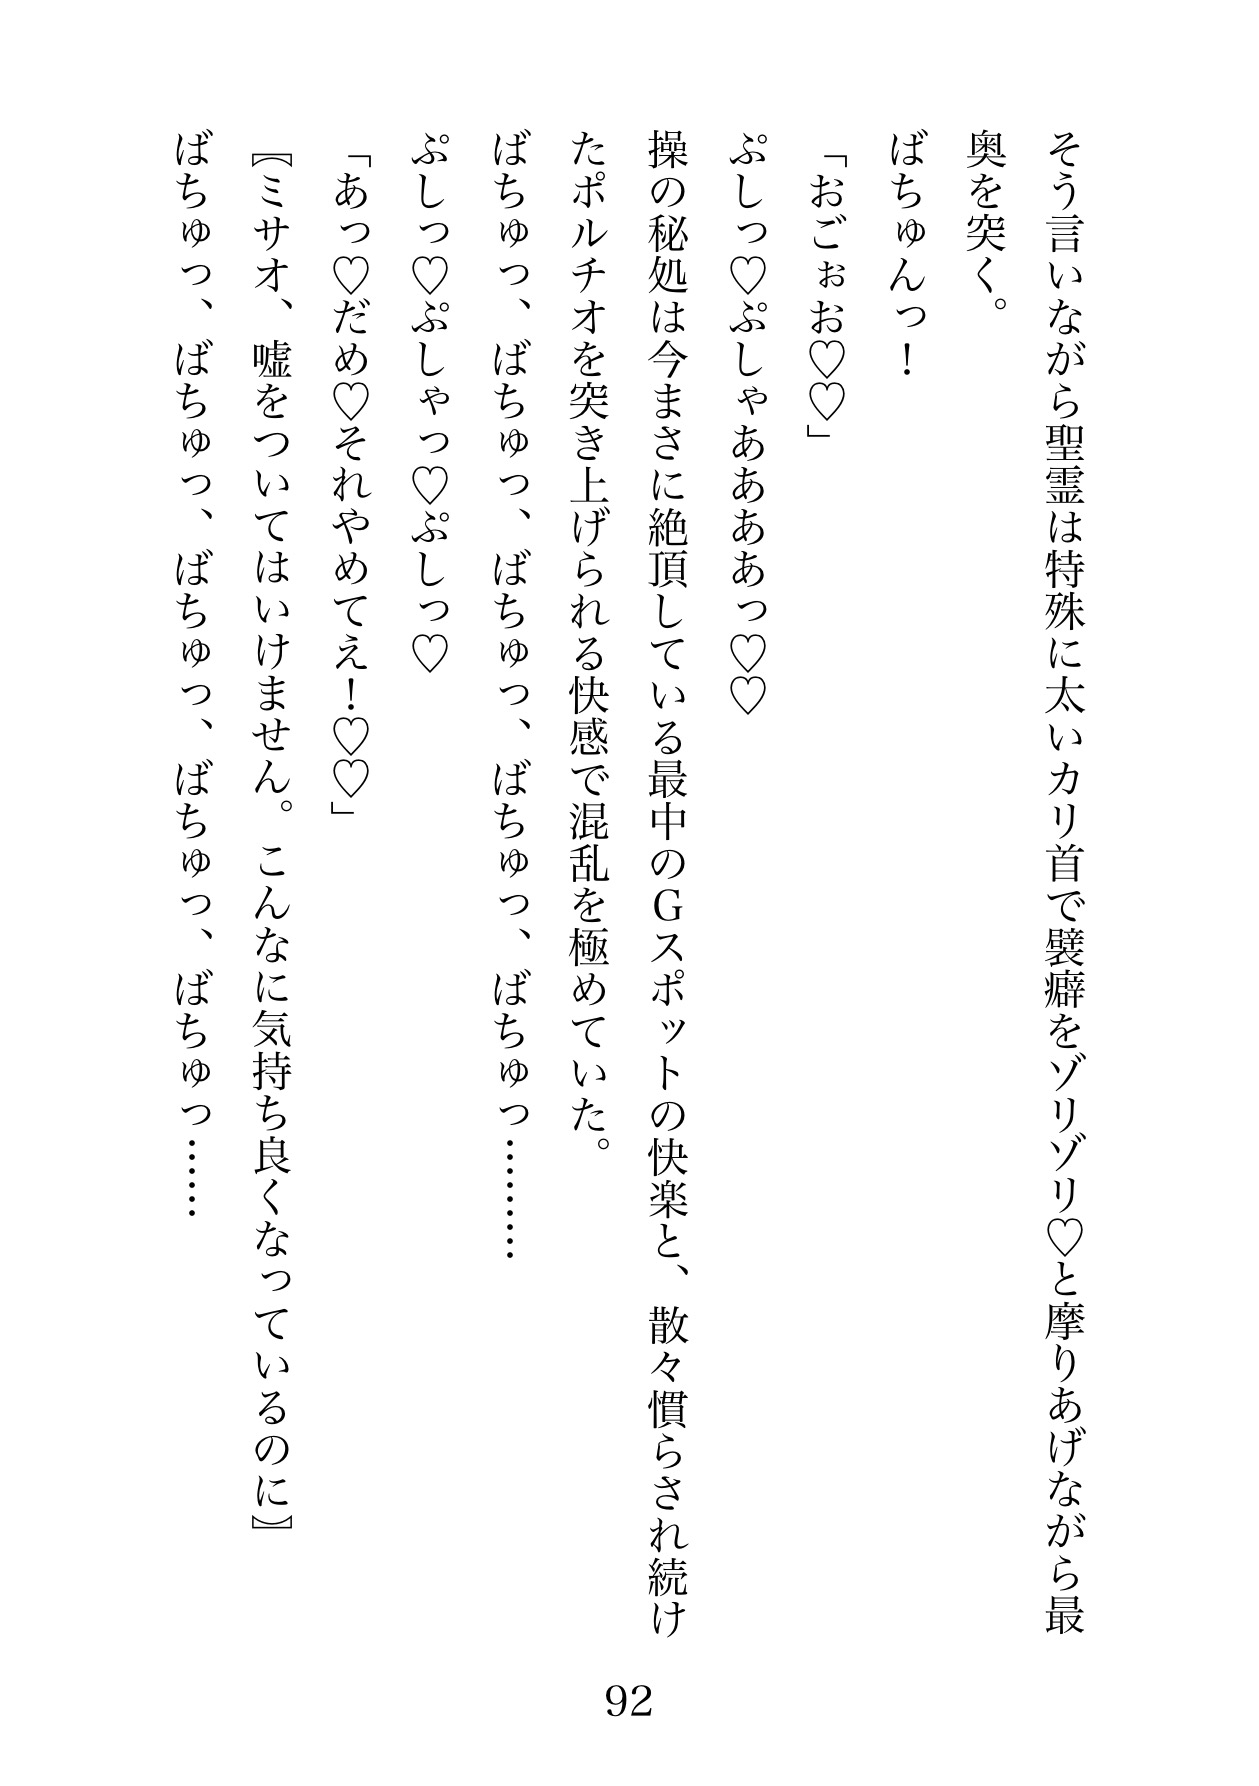 そう言いながら聖霊は特殊に太いカリ首で襞癖をゾリゾリ♡と摩りあげながら最
奥を突く。
ばちゅんっ！
「おごぉお♡♡」
ぷしっ♡ぷしゃああああっ♡♡
操の秘処は今まさに絶頂している最中のGスポットの快楽と、散々慣らされ続け
たポルチオを突き上げられる快感で混乱を極めていた。
ばちゅっ、ばちゅっ、ばちゅっ、ばちゅっ、ばちゅっ………
ぷしっ♡ぷしゃっ♡ぷしっ♡
「あっ♡だめ♡それやめてえ！♡♡」
〖ミサオ、嘘をついてはいけません。こんなに気持ち良くなっているのに〗
ばちゅっ、ばちゅっ、ばちゅっ、ばちゅっ、ばちゅっ……
92